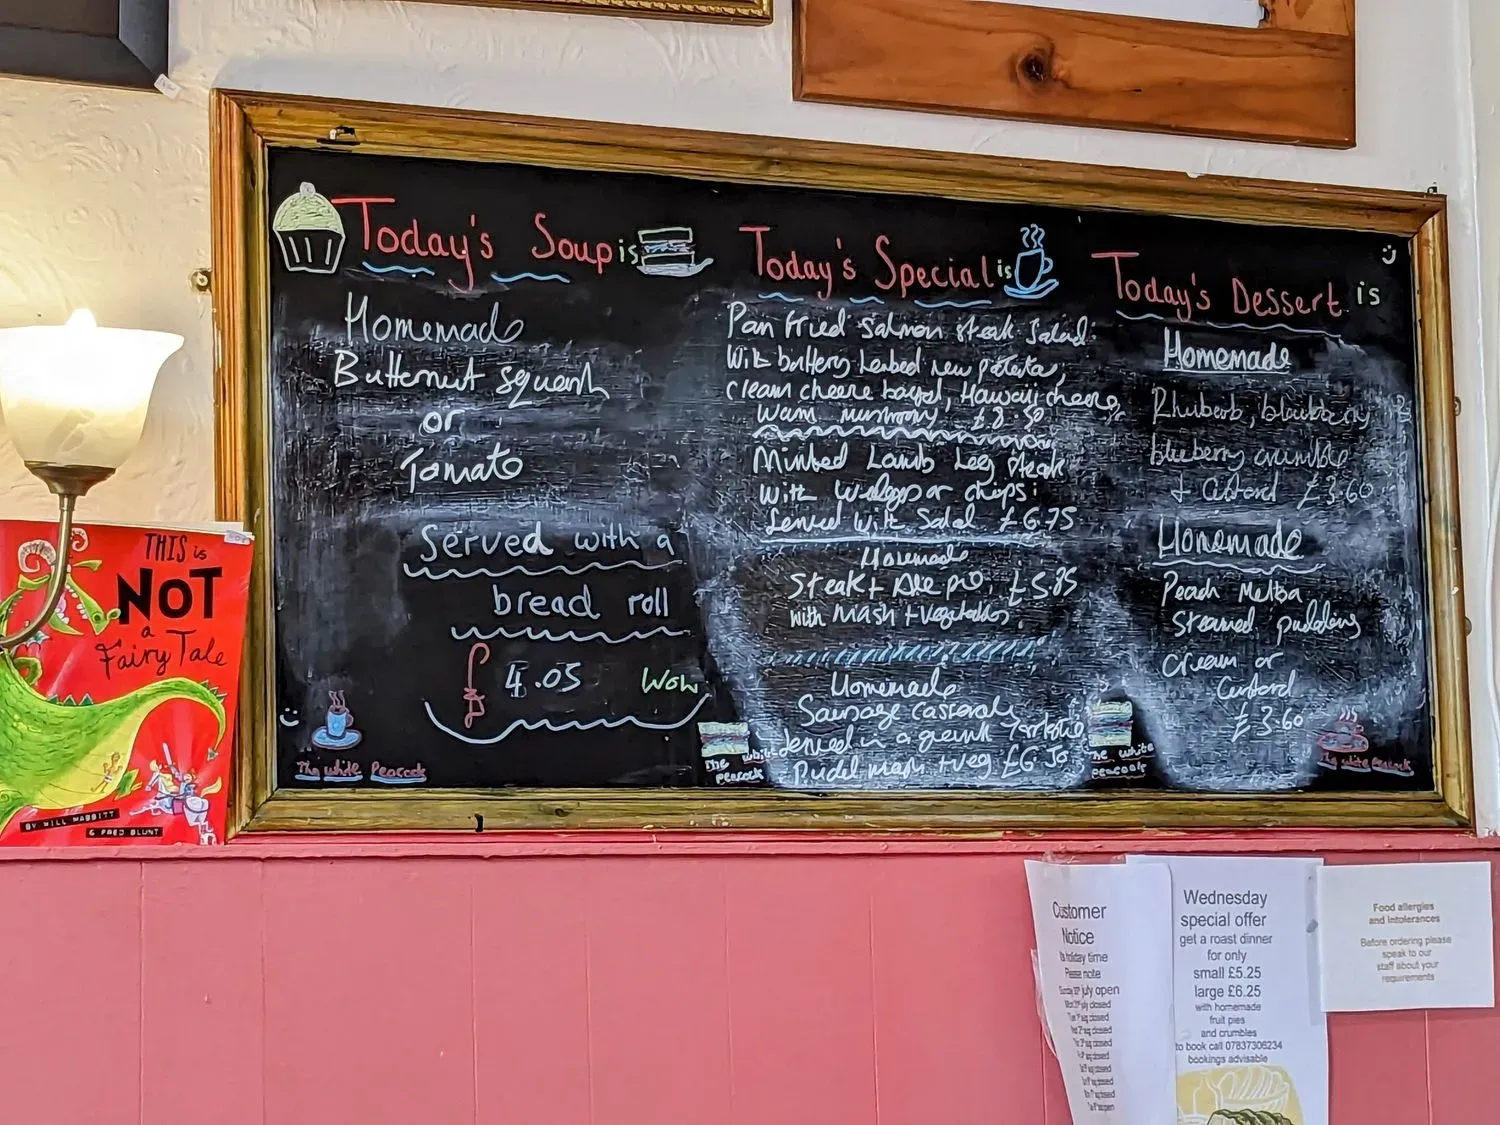 Today's Soup is
Homemade
Butternut squash
or
Tomato
Served with a
bread roll
£ 4.05 Wow
The White Peacock
Today's Special is
Pan Fried Salmon steak Salad
With buttery new potato,
cream cheese bagel, Hawaii cheese
warm £8.50
Minted Lamb Leg steak
With or chips
Served With Salad £6.75
Homemade
Steak + Ale pie, £5.85
with Mash + vegetables
Homemade
Sausage casserole
served in a giant Yorkshire
Pudd mash + veg £6.50
The White
Peacock
Today's Dessert is
Homemade
Rhubarb, blackberry
blueberry crumble
+ Custard £3.60
Homemade
Peach Melba
Steamed pudding
Cream or
Custard
£3.60
The White
Peacock
The White Peacock
THIS is
NOT
a
Fairy Tale
BY WILL MABBITT
& FRED BLUNT
Customer
Notice
holiday time
Please note
july open
july closed
aug closed
aug closed
aug closed
aug closed
aug closed
aug closed
aug closed
open
Wednesday
special offer
get a roast dinner
for only
small £5.25
large £6.25
with homemade
fruit pies
and crumbles
to book call 07837306234
bookings advisable
Food allergies
and Intolerances
Before ordering please
speak to our
staff about your
requirements